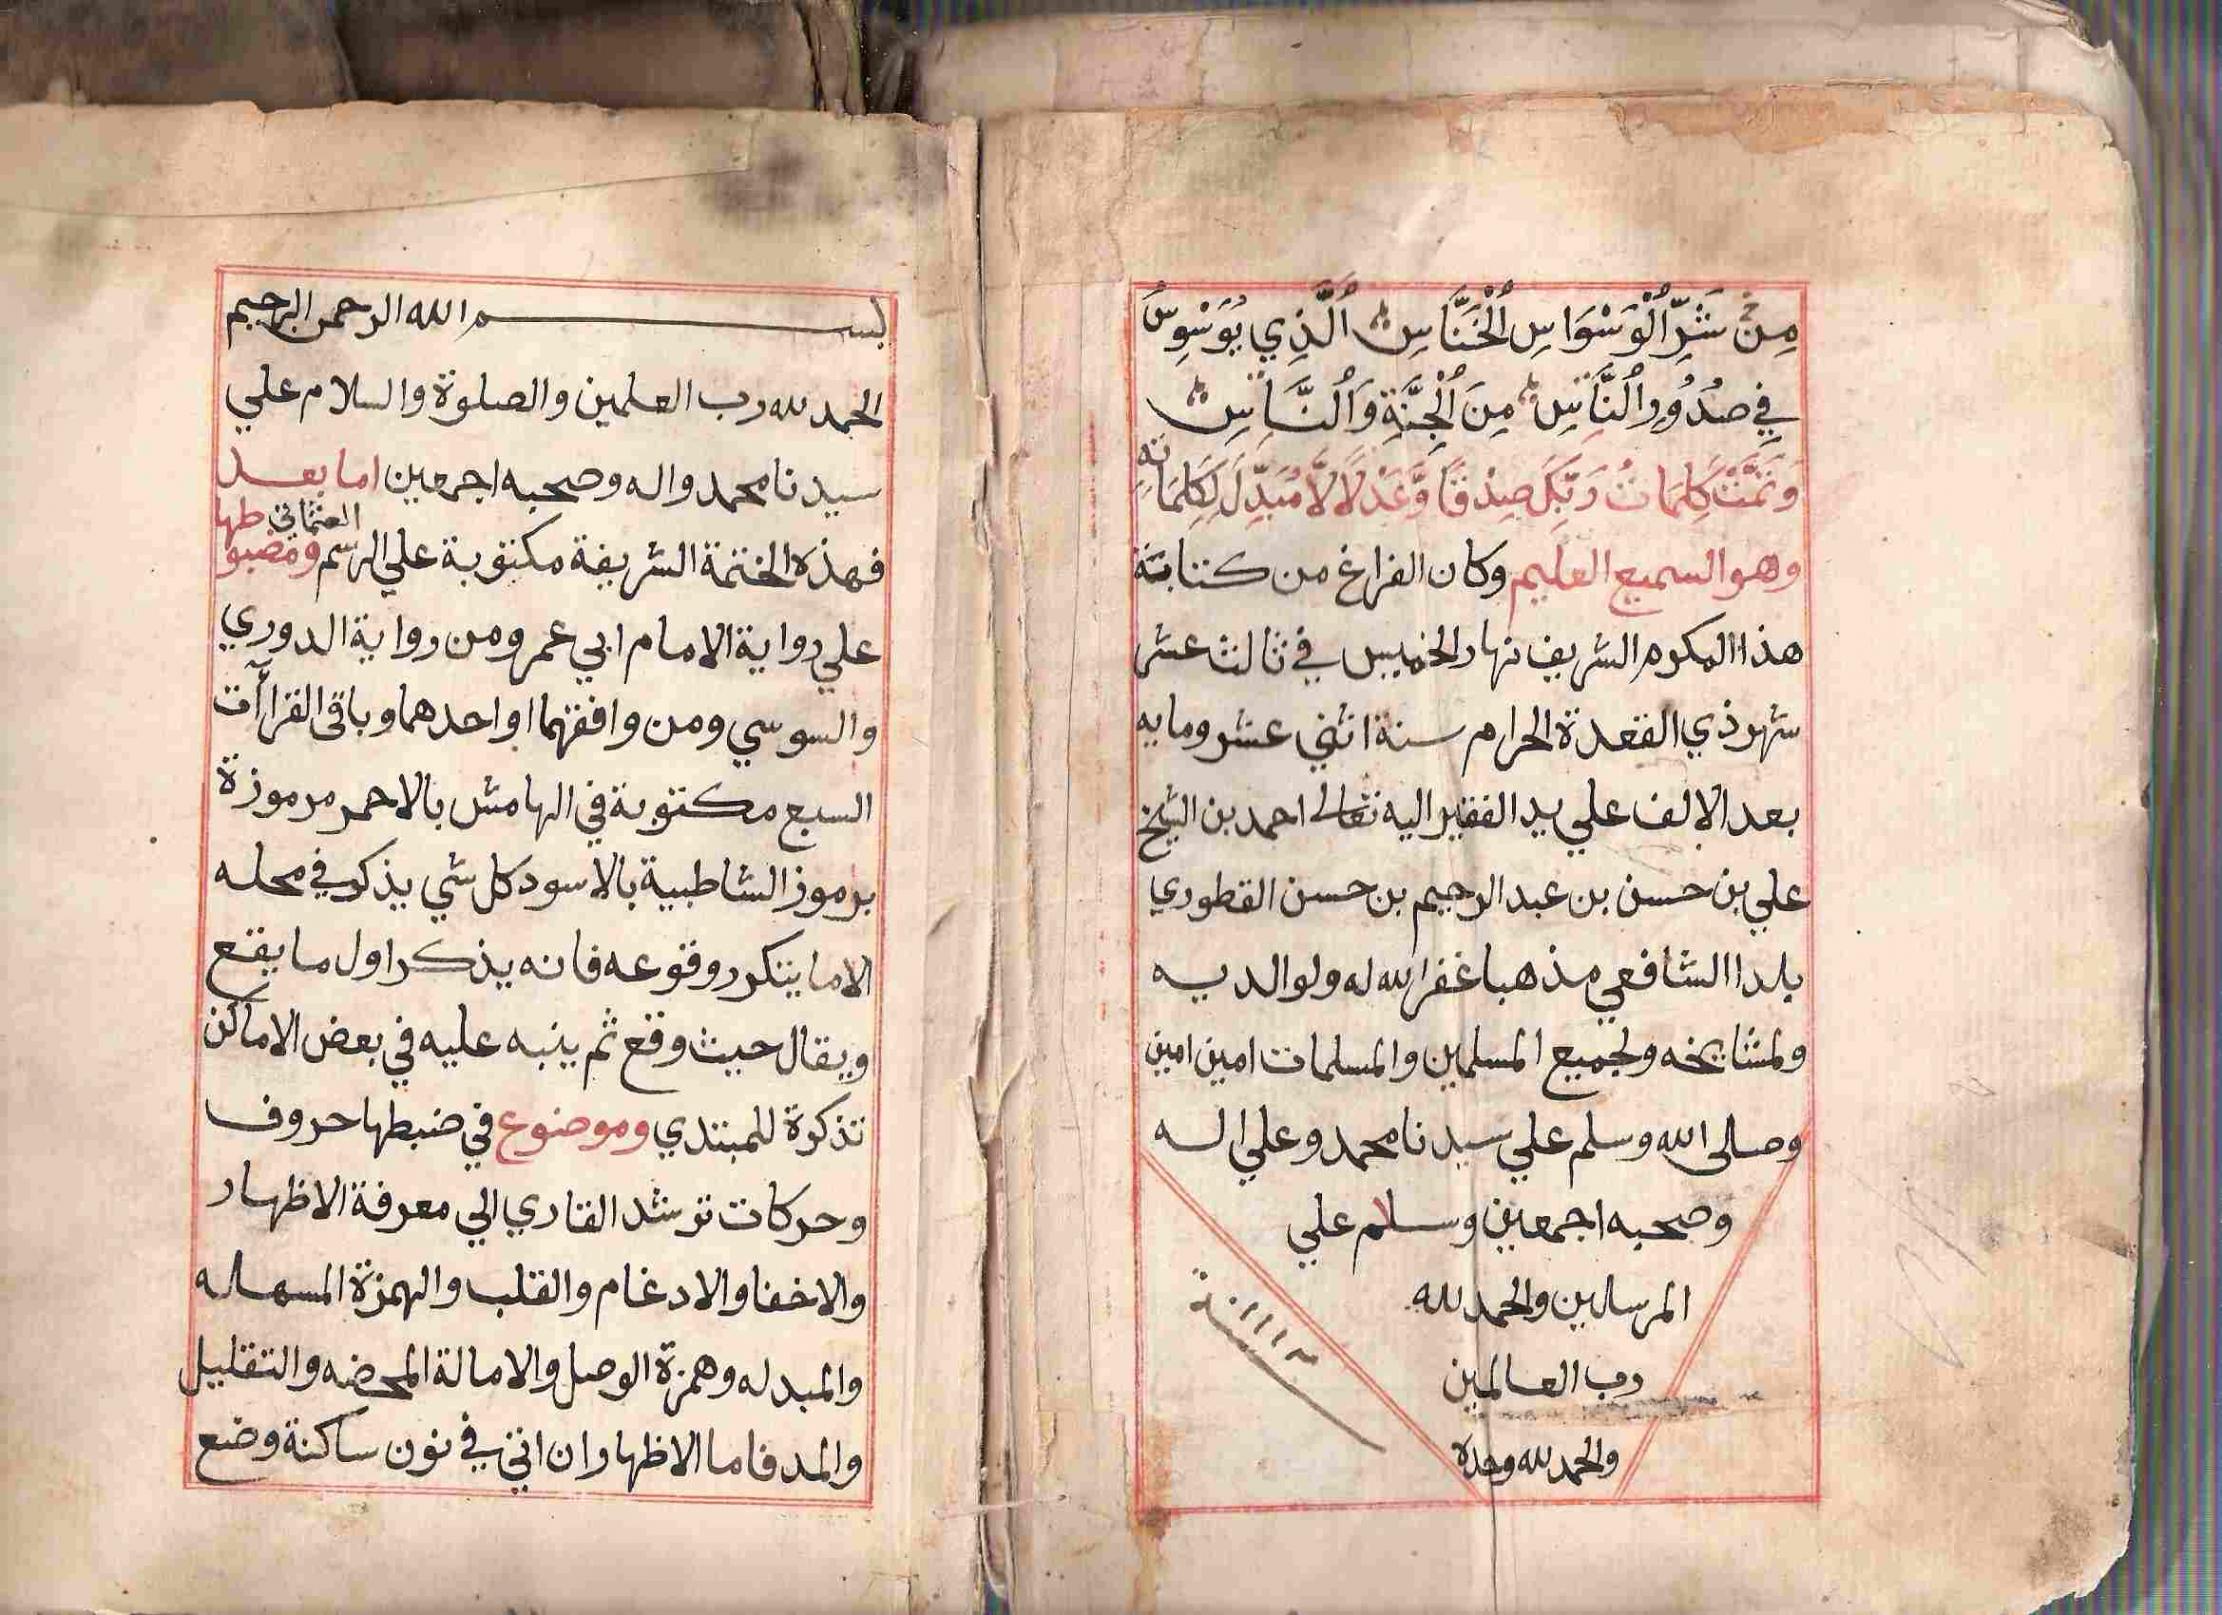 مِنْ شَرِّ ٱلْوَسْوَاسِ ٱلْخَنَّاسِ ٱلَّذِي يُوَسْوِسُ
فِي صُدُورِ ٱلنَّاسِ مِنَ ٱلْجِنَّةِ وَٱلنَّاسِ
وَتَمَّتْ كَلِمَاتُ رَبِّكَ صِدْقًا وَّعَدْلًا لَّا مُبَدِّلَ لِكَلِمَاتِهِ
وهو السميع العليم وكان الفراغ من كتابة
هذا المكرم الشريف نهار الخميس في ثالث عشر
شهر ذي القعدة الحرام سنة اثني عشر ومايه
بعد الالف علي يد الفقير اليه تعالى احمد بن الشيخ
علي بن حسن بن عبد الرحيم بن حسن القطوري
بلدا الشافعي مذهبا غفر الله له ولوالديه
ولمشايخه ولجميع المسلمين والمسلمات امين امين
وصلى الله وسلم علي سيدنا محمد وعلي اله
وصحبه اجمعين وسلام علي
المرسلين والحمد لله
رب العالمين
والحمد لله وحده
سنة
بسم الله الرحمن الرحيم
الحمد لله رب العلمين والصلوة والسلام علي
سيدنا محمد واله وصحبه اجمعين اما بعد
فهذه الختمة الشريفة مكتوبة علي الرسم العثماني ومضبوطها
علي رواية الامام ابي عمرو من رواية الدوري
والسوسي ومن وافقهما او احدهما وباقي القراآت
السبع مكتوبة في الهامش بالاحمر مرموزة
برموز الشاطبية بالاسود كل شي يذكر في محله
الا ما يتكرر وقوعه فانه يذكر اول ما يقع
ويقال حيث وقع ثم ينبه عليه في بعض الاماكن
تذكرة للمبتدي وموضوع في ضبطها حروف
وحركات ترشد القاري الي معرفة الاظهار
والاخفا والادغام والقلب والهمزة المسهله
والمبدله وهمزة الوصل والامالة المحضه والتقليل
والمد فاما الاظهار ان اتي في نون ساكنة وضع